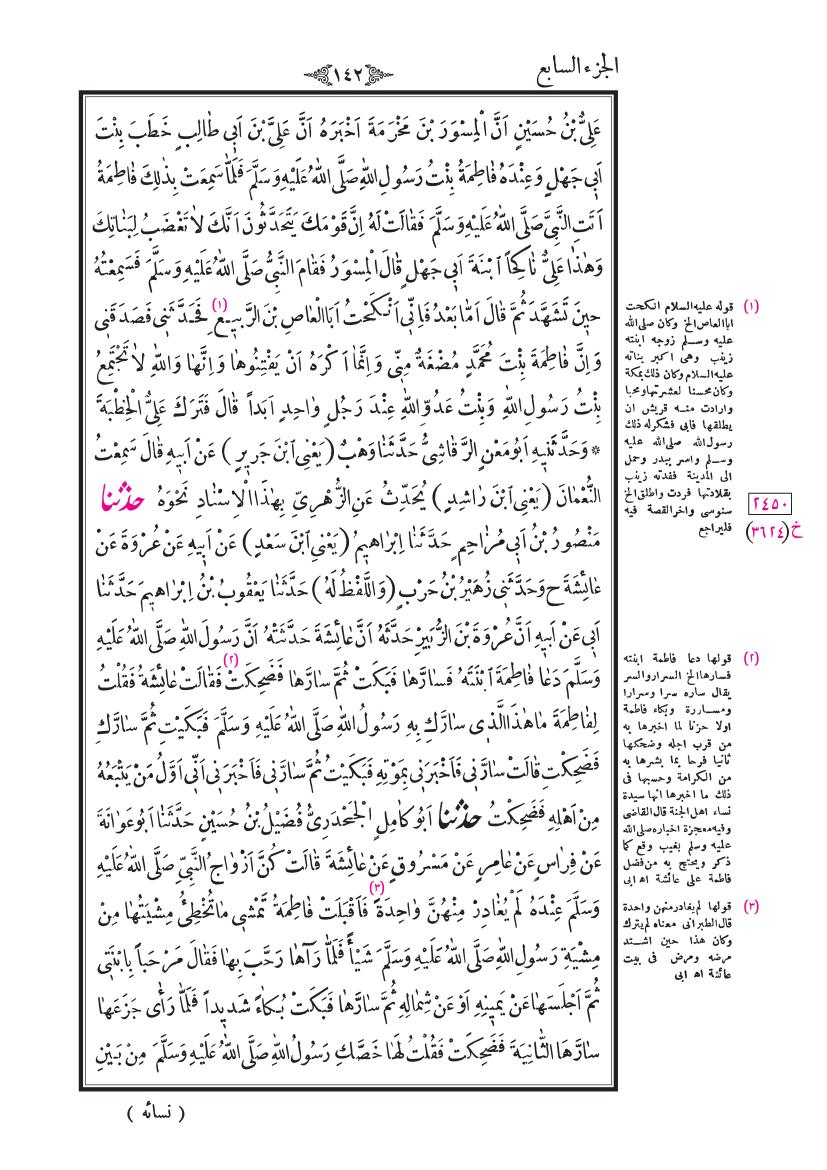 الجزء السابع
١٤٢
عَلِيُّ بْنُ حُسَيْنٍ اَنَّ الْمِسْوَرَ بْنَ مَخْرَمَةَ اَخْبَرَهُ اَنَّ عَلِيَّ بْنَ اَبِي طَالِبٍ خَطَبَ بِنْتَ
اَبِي جَهْلٍ وَعِنْدَهُ فَاطِمَةُ بِنْتُ رَسُولِ اللهِ صَلَّى اللهُ عَلَيْهِ وَسَلَّمَ فَلَمَّا سَمِعَتْ بِذٰلِكَ فَاطِمَةُ
اَتَتِ النَّبِيَّ صَلَّى اللهُ عَلَيْهِ وَسَلَّمَ فَقَالَتْ لَهُ اِنَّ قَوْمَكَ يَتَحَدَّثُونَ اَنَّكَ لَا تَغْضَبُ لِبَنَاتِكَ
وَهٰذَا عَلِيٌّ نَاكِحاً ابْنَةَ اَبِي جَهْلٍ قَالَ الْمِسْوَرُ فَقَامَ النَّبِيُّ صَلَّى اللهُ عَلَيْهِ وَسَلَّمَ فَسَمِعْتُهُ
حِينَ تَشَهَّدَ ثُمَّ قَالَ اَمَّا بَعْدُ فَاِنِّي اَنْكَحْتُ اَبَا الْعَاصِ بْنَ الرَّبِيعِ (١) فَحَدَّثَنِي فَصَدَقَنِي
وَاِنَّ فَاطِمَةَ بِنْتَ مُحَمَّدٍ مُضْغَةٌ مِنِّي وَاِنَّمَا اَكْرَهُ اَنْ يَفْتِنُوهَا وَاِنَّهَا وَاللهِ لَا تَجْتَمِعُ
بِنْتُ رَسُولِ اللهِ وَبِنْتُ عَدُوِّ اللهِ عِنْدَ رَجُلٍ وَاحِدٍ اَبَداً قَالَ فَتَرَكَ عَلِيٌّ الْخِطْبَةَ
* وَحَدَّثَنِيهِ اَبُو مَعْنٍ الرَّقَاشِيُّ حَدَّثَنَا وَهْبٌ (يَعْنِي ابْنَ جَرِيرٍ) عَنْ اَبِيهِ قَالَ سَمِعْتُ
النُّعْمَانَ (يَعْنِي ابْنَ رَاشِدٍ) يُحَدِّثُ عَنِ الزُّهْرِيِّ بِهٰذَا الْاِسْنَادِ نَحْوَهُ حدثنا
مَنْصُورُ بْنُ اَبِي مُزَاحِمٍ حَدَّثَنَا اِبْرَاهِيمُ (يَعْنِي ابْنَ سَعْدٍ) عَنْ اَبِيهِ عَنْ عُرْوَةَ عَنْ
عَائِشَةَ ح وَحَدَّثَنِي زُهَيْرُ بْنُ حَرْبٍ (وَاللَّفْظُ لَهُ) حَدَّثَنَا يَعْقُوبُ بْنُ اِبْرَاهِيمَ حَدَّثَنَا
اَبِي عَنْ اَبِيهِ اَنَّ عُرْوَةَ بْنَ الزُّبَيْرِ حَدَّثَهُ اَنَّ عَائِشَةَ حَدَّثَتْهُ اَنَّ رَسُولَ اللهِ صَلَّى اللهُ عَلَيْهِ
وَسَلَّمَ دَعَا فَاطِمَةَ ابْنَتَهُ فَسَارَّهَا فَبَكَتْ ثُمَّ سَارَّهَا فَضَحِكَتْ (٢) فَقَالَتْ عَائِشَةُ فَقُلْتُ
لِفَاطِمَةَ مَا هٰذَا الَّذِي سَارَّكِ بِهِ رَسُولُ اللهِ صَلَّى اللهُ عَلَيْهِ وَسَلَّمَ فَبَكَيْتِ ثُمَّ سَارَّكِ
فَضَحِكْتِ قَالَتْ سَارَّنِي فَاَخْبَرَنِي بِمَوْتِهِ فَبَكَيْتُ ثُمَّ سَارَّنِي فَاَخْبَرَنِي اَنِّي اَوَّلُ مَنْ يَتْبَعُهُ
مِنْ اَهْلِهِ فَضَحِكْتُ حدثنا اَبُو كَامِلٍ الْجَحْدَرِيُّ فُضَيْلُ بْنُ حُسَيْنٍ حَدَّثَنَا اَبُو عَوَانَةَ
عَنْ فِرَاسٍ عَنْ عَامِرٍ عَنْ مَسْرُوقٍ عَنْ عَائِشَةَ قَالَتْ كُنَّ اَزْوَاجُ النَّبِيِّ صَلَّى اللهُ عَلَيْهِ
وَسَلَّمَ عِنْدَهُ لَمْ يُغَادِرْ مِنْهُنَّ وَاحِدَةً (٣) فَاَقْبَلَتْ فَاطِمَةُ تَمْشِي مَا تُخْطِئُ مِشْيَتُهَا مِنْ
مِشْيَةِ رَسُولِ اللهِ صَلَّى اللهُ عَلَيْهِ وَسَلَّمَ شَيْأً فَلَمَّا رَآهَا رَحَّبَ بِهَا فَقَالَ مَرْحَباً بِابْنَتِي
ثُمَّ اَجْلَسَهَا عَنْ يَمِينِهِ اَوْ عَنْ شِمَالِهِ ثُمَّ سَارَّهَا فَبَكَتْ بُكَاءً شَدِيداً فَلَمَّا رَأَى جَزَعَهَا
سَارَّهَا الثَّانِيَةَ فَضَحِكَتْ فَقُلْتُ لَهَا خَصَّكِ رَسُولُ اللهِ صَلَّى اللهُ عَلَيْهِ وَسَلَّمَ مِنْ بَيْنِ
( نسائه )
(١) قوله عليه السلام انكحت
ابا العاص الخ وكان صلى الله
عليه وسلم زوجه ابنته
زينب وهى اكبر بناته
عليه السلام وكان ذلك بمكة
وكان محسنا لعشرتها ومحبا
وارادت منه قريش ان
يطلقها فابى فشكر له ذلك
رسول الله صلى الله عليه
وسلم واسر ببدر وحمل
الى المدينة ففدته زينب
بقلادتها فردت واطلق الخ
سنوسى واخر القصة فيه
فليراجع
٢٤٥٠
خ (٣٦٢٤)
(٢) قولها دعا فاطمة ابنته
فسارها الخ السرار والسر
يقال ساره سرا وسرارا
ومساررة وبكاء فاطمة
اولا حزنا لما اخبرها به
من قرب اجله وضحكها
ثانيا فرحا بما بشرها به
من الكرامة وحسبها فى
ذلك ما اخبرها انها سيدة
نساء اهل الجنة قال القاضى
وفيه معجزة اخباره صلى الله
عليه وسلم بغيب وقع كما
ذكر ويحتج به من فضل
فاطمة على عائشة اه ابى
(٣) قولها لم يغادر منهن واحدة
قال الطبرانى معناه لم يترك
وكان هذا حين اشتد
مرضه ومرض فى بيت
عائشة اه ابى